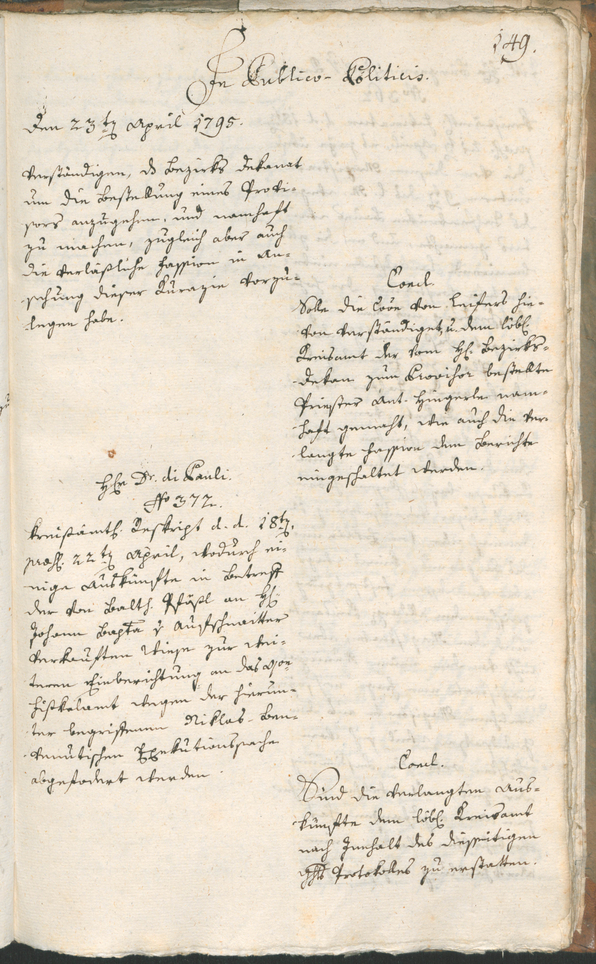 149.
In Publico-Politicis.
Den 23ten April 1795.
verständigen, ds Bezirks Dekanat
um die Bestellung eines Provi-
sors anzugehen, und namhaft
zu machen, zugleich aber auch
die verläßliche Fassion in An-
sehung dieser Kurazie vorzu-
legen habe.
Concl.
Solle die von Leifers hie-
von verständiget, u. dem löbl.
Kreisamt der vom H. Bezirks-
dekan zum Provisor bestellte
Priester Ant. Hingerle nam-
haft gemacht, wie auch die ver-
langte Fassion dem Berichte
eingeschaltet werden.
H Dr. di Pauli.
No 372.
Kreisämtl. Reskript d. d. 18ten,
22ten April, wodurch ei-
nige Auskünfte in Betreff
der von Balth. Pfößl an H.
Johann Bapta v Aufschnaiter
verkauften Wiese zur wei-
teren Einberichtung an das
Fiskalamt wegen der hierun-
ter begriffenen Niklas-Ben-
venutischen Exekutionssache
abgefodert werden
Concl.
Sind die verlangten Aus-
künfte dem löbl. Kreisamt
nach Innhalt des diesseitigen
Protokolls zu erstatten.